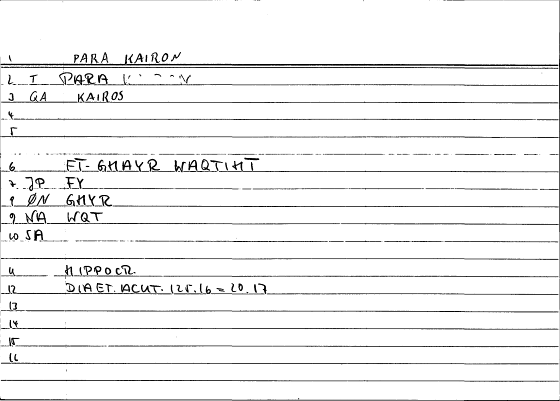 1 PARA KAIRON
2 T PARA
3 QA KAIROS
4
5
6 FT-GHAYR WAQTIHT
7 JP FY
8 ØN GHYR
9 NA WQT
10 SA
11 HIPPOCR.
12 DIAET. ACUT. 125.16 = 20.17
13
14
15
16